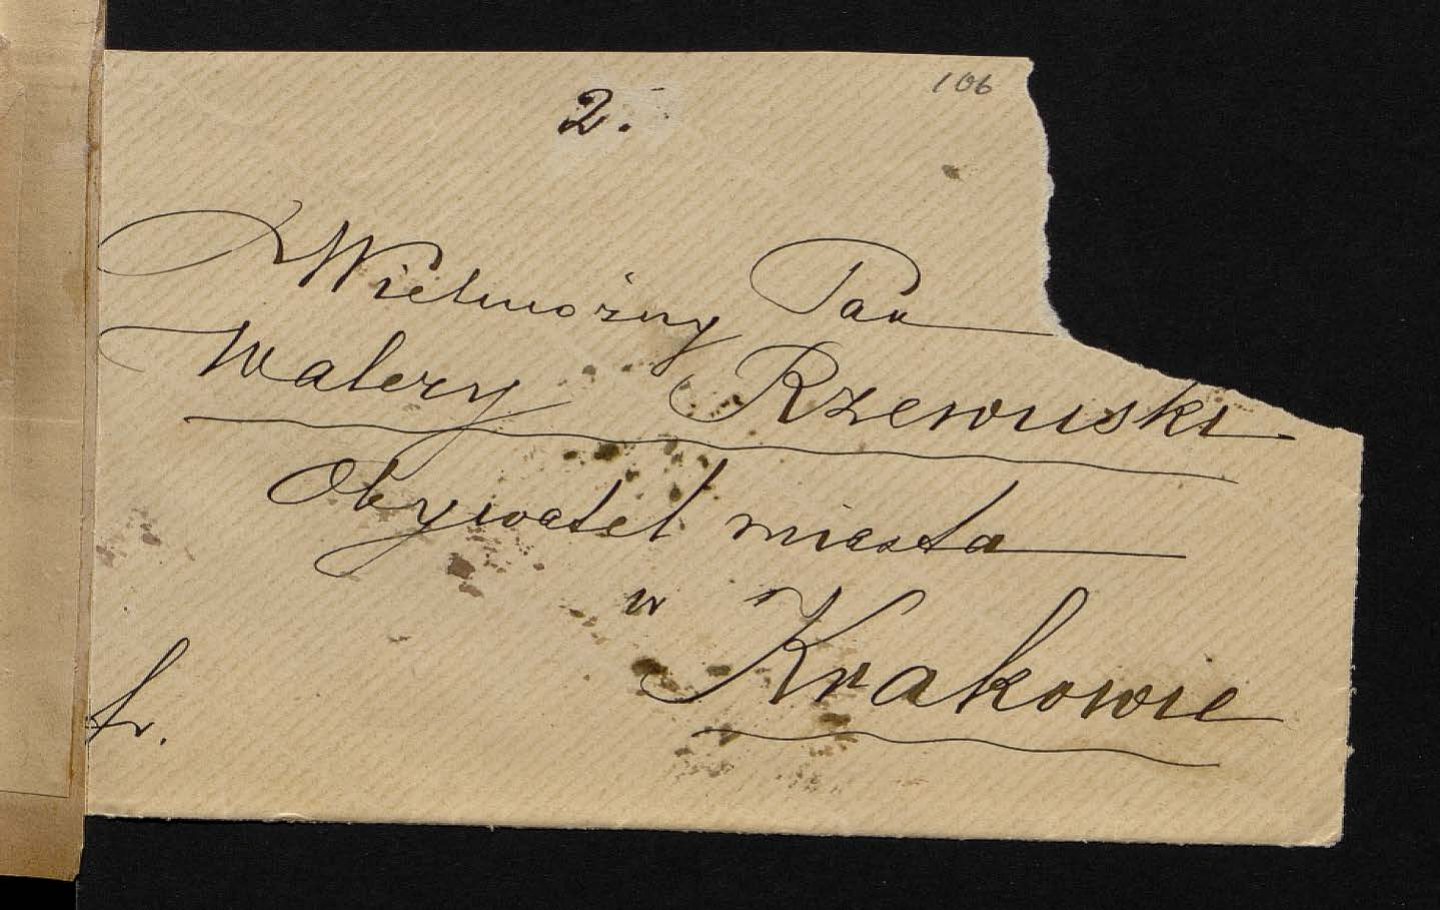 106
2.
Wielmożny Pan
Walery Rzewuski
Obywatel miasta
w Krakowie
fr.